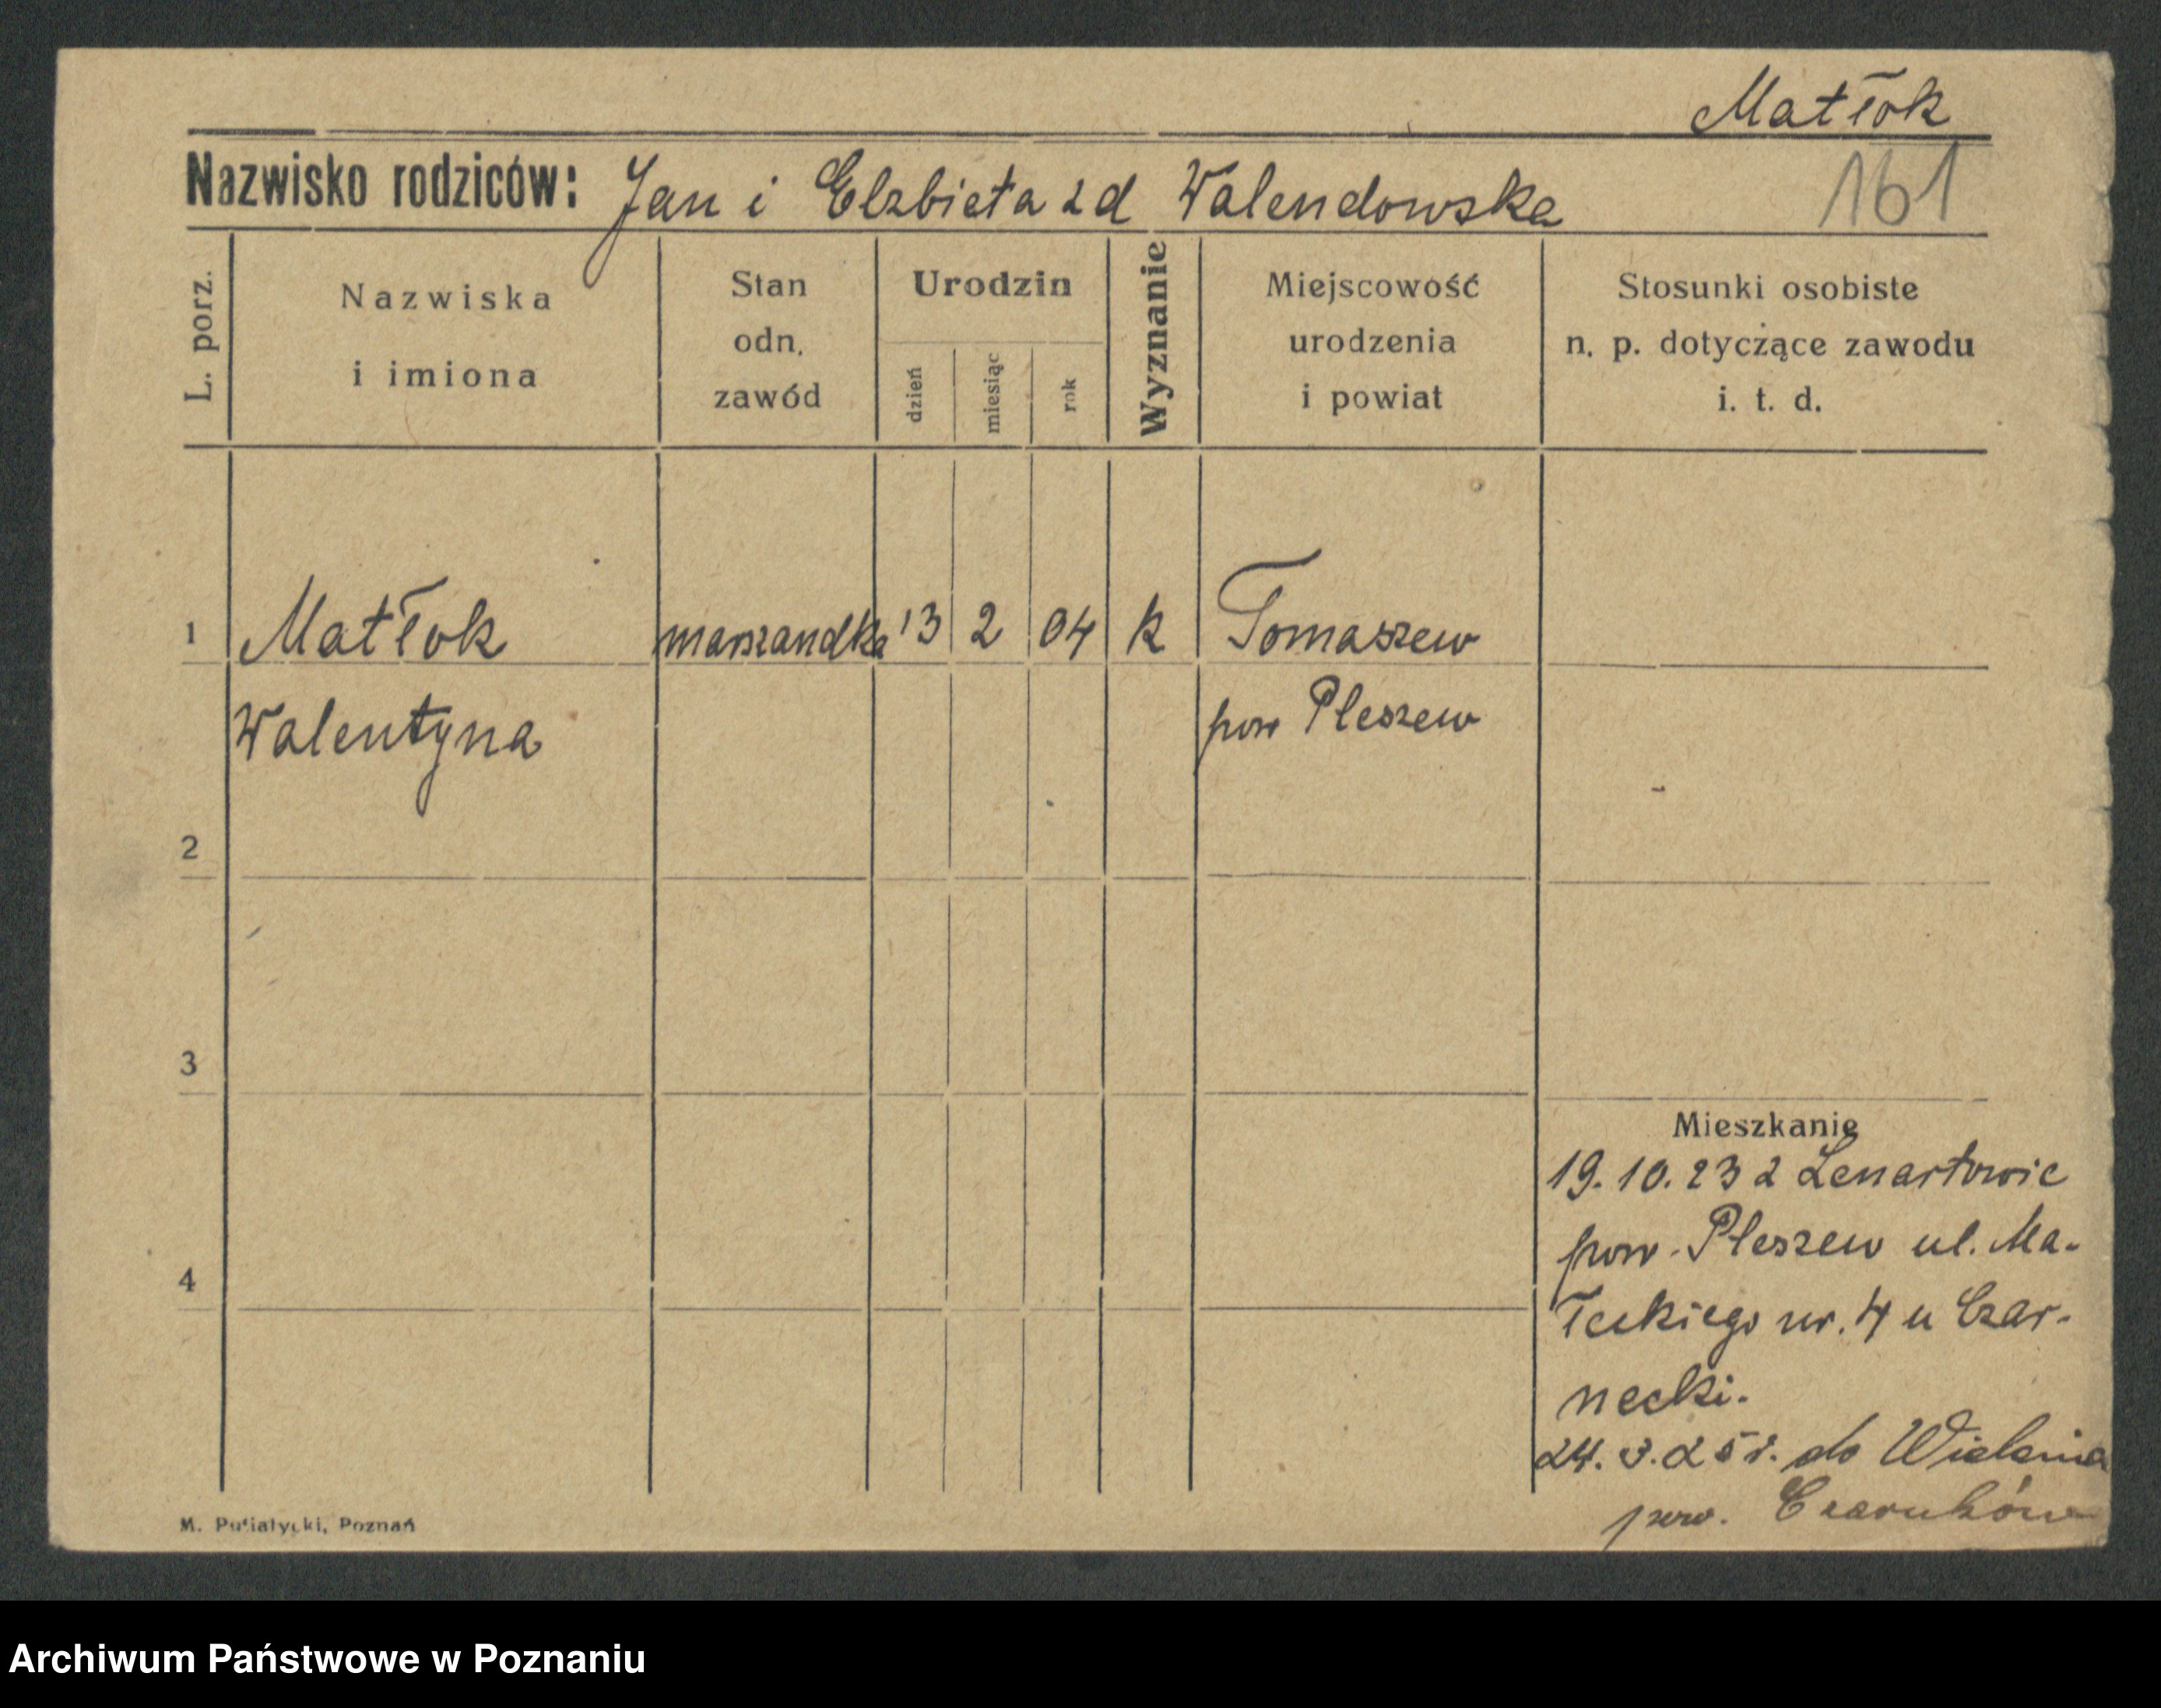 Matłok
161
Nazwisko rodziców: Jan i Elzbieta zd Walendowska
L. porz.
Nazwiska
i imiona
Stan
odn.
zawód
Urodzin
dzień
miesiąc
rok
Wyznanie
Miejscowość
urodzenia
i powiat
Stosunki osobiste
n. p. dotyczące zawodu
i. t. d.
1 Matłok marszandka 13 2 04 k Tomaszew
Walentyna pow Pleszew
2
3
Mieszkanie
19.10.23 z Lenartowic
pow. Pleszew ul. Ma-
łeckiego nr. 4 u Czar-
4
necki.
24.3.25 r. do Wielenia
pow. Czarnków
M. Putiatycki, Poznań
Archiwum Państwowe w Poznaniu